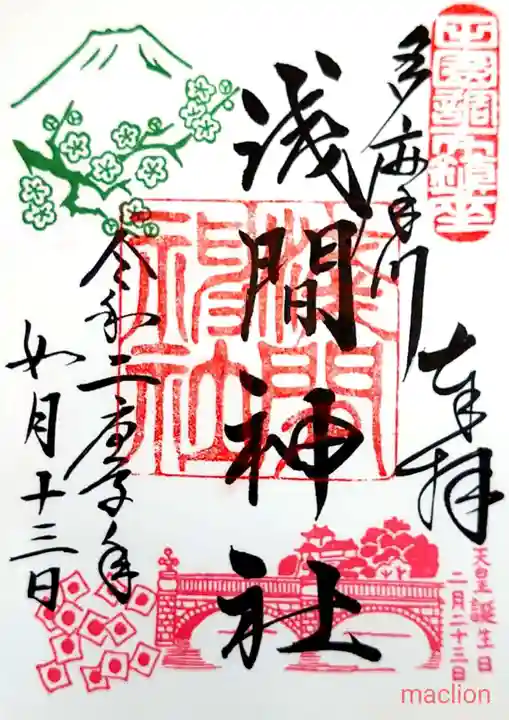 田園調布鎮座
奉拝
多摩川
浅間神社
淺間
神社
令和二庚子年
如月十三日
天皇誕生日
二月二十三日
maclion